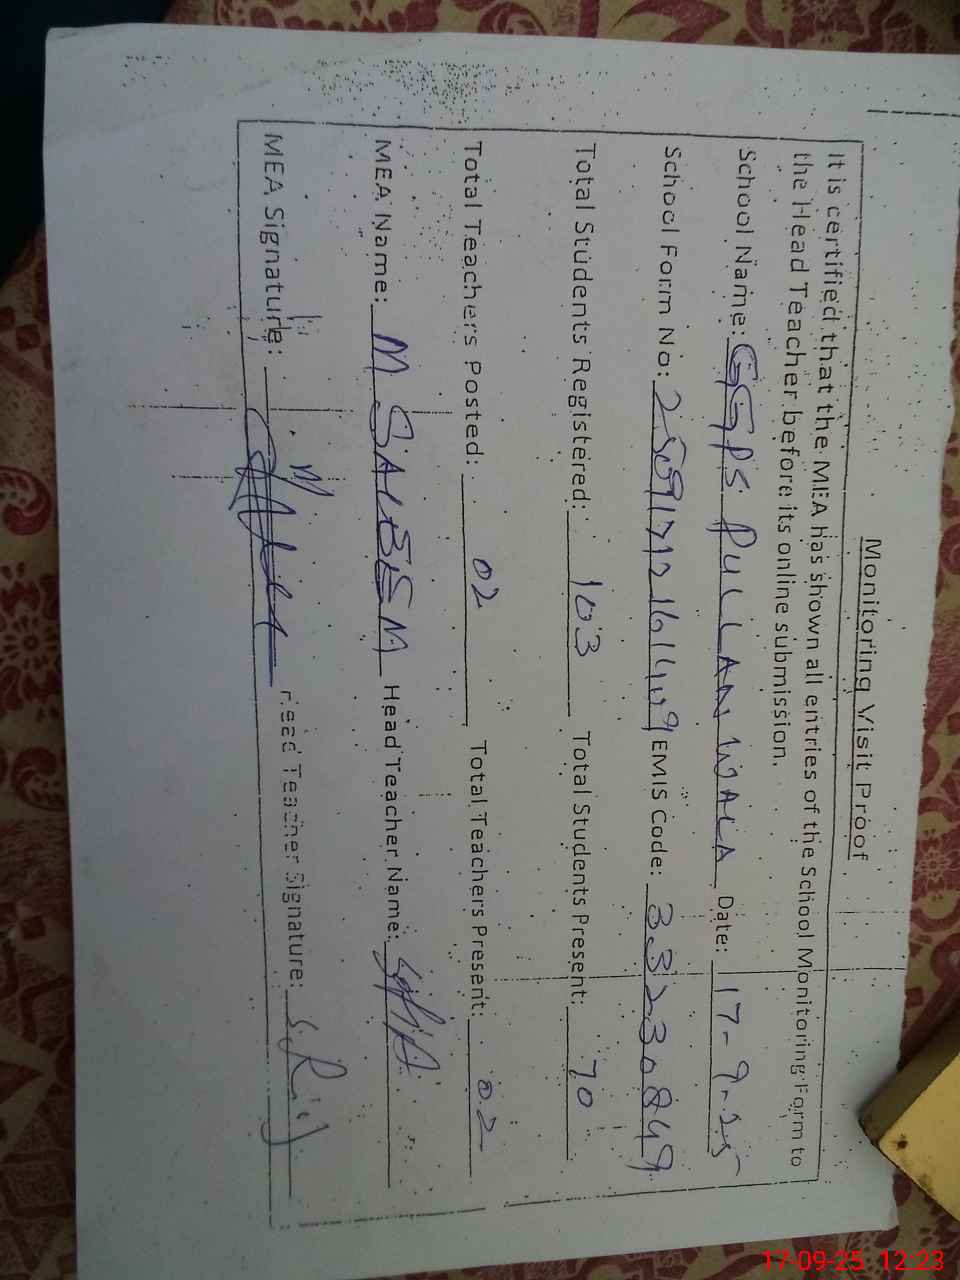 Monitoring Visit Proof
It is certified that the MEA has shown all entries of the School Monitoring Form to
the Head Teacher before its online submission.
School Name: GGPS PULLAN WALA Date: 17-9-25
School Form No: EMIS Code: 33230849
Total Students Registered: 103 Total Students Present: 70
Total Teachers Posted: 02 Total Teachers Present: 02
MEA Name: M SALEEM Head Teacher Name:
MEA Signature: Head Teacher Signature:
17-09-25 12:23